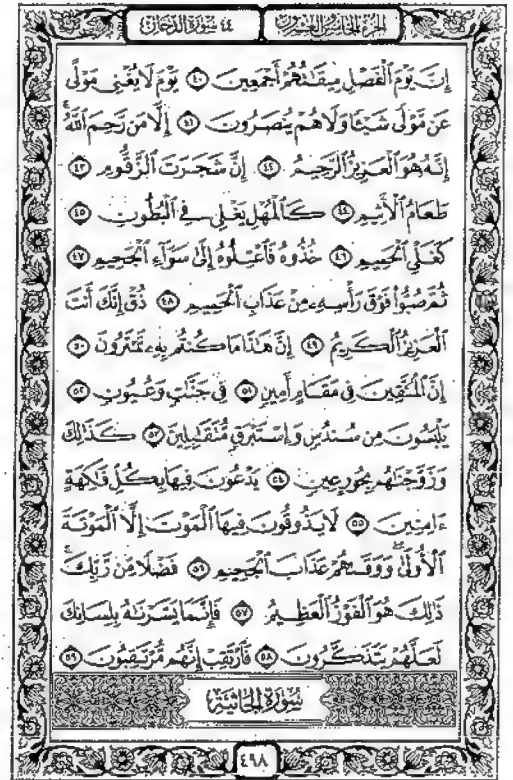 الجزء الخامس والعشرون
٤٤ سورة الدخان
إِنَّ يَوْمَ ٱلْفَصْلِ مِيقَٰتُهُمْ أَجْمَعِينَ ٤٠ يَوْمَ لَا يُغْنِى مَوْلًى
عَن مَّوْلًى شَيْـًٔا وَلَا هُمْ يُنصَرُونَ ٤١ إِلَّا مَن رَّحِمَ ٱللَّهُ ۚ
إِنَّهُۥ هُوَ ٱلْعَزِيزُ ٱلرَّحِيمُ ٤٢ إِنَّ شَجَرَتَ ٱلزَّقُّومِ ٤٣
طَعَامُ ٱلْأَثِيمِ ٤٤ كَٱلْمُهْلِ يَغْلِى فِى ٱلْبُطُونِ ٤٥
كَغَلْىِ ٱلْحَمِيمِ ٤٦ خُذُوهُ فَٱعْتِلُوهُ إِلَىٰ سَوَآءِ ٱلْجَحِيمِ ٤٧
ثُمَّ صُبُّوا۟ فَوْقَ رَأْسِهِۦ مِنْ عَذَابِ ٱلْحَمِيمِ ٤٨ ذُقْ إِنَّكَ أَنتَ
ٱلْعَزِيزُ ٱلْكَرِيمُ ٤٩ إِنَّ هَٰذَا مَا كُنتُم بِهِۦ تَمْتَرُونَ ٥٠
إِنَّ ٱلْمُتَّقِينَ فِى مَقَامٍ أَمِينٍ ٥١ فِى جَنَّٰتٍ وَعُيُونٍ ٥٢
يَلْبَسُونَ مِن سُندُسٍ وَإِسْتَبْرَقٍ مُّتَقَٰبِلِينَ ٥٣ كَذَٰلِكَ
وَزَوَّجْنَٰهُم بِحُورٍ عِينٍ ٥٤ يَدْعُونَ فِيهَا بِكُلِّ فَٰكِهَةٍ
ءَامِنِينَ ٥٥ لَا يَذُوقُونَ فِيهَا ٱلْمَوْتَ إِلَّا ٱلْمَوْتَةَ
ٱلْأُولَىٰ ۖ وَوَقَىٰهُمْ عَذَابَ ٱلْجَحِيمِ ٥٦ فَضْلًا مِّن رَّبِّكَ ۚ
ذَٰلِكَ هُوَ ٱلْفَوْزُ ٱلْعَظِيمُ ٥٧ فَإِنَّمَا يَسَّرْنَٰهُ بِلِسَانِكَ
لَعَلَّهُمْ يَتَذَكَّرُونَ ٥٨ فَٱرْتَقِبْ إِنَّهُم مُّرْتَقِبُونَ ٥٩
سورة الجاثية
٤٩٨